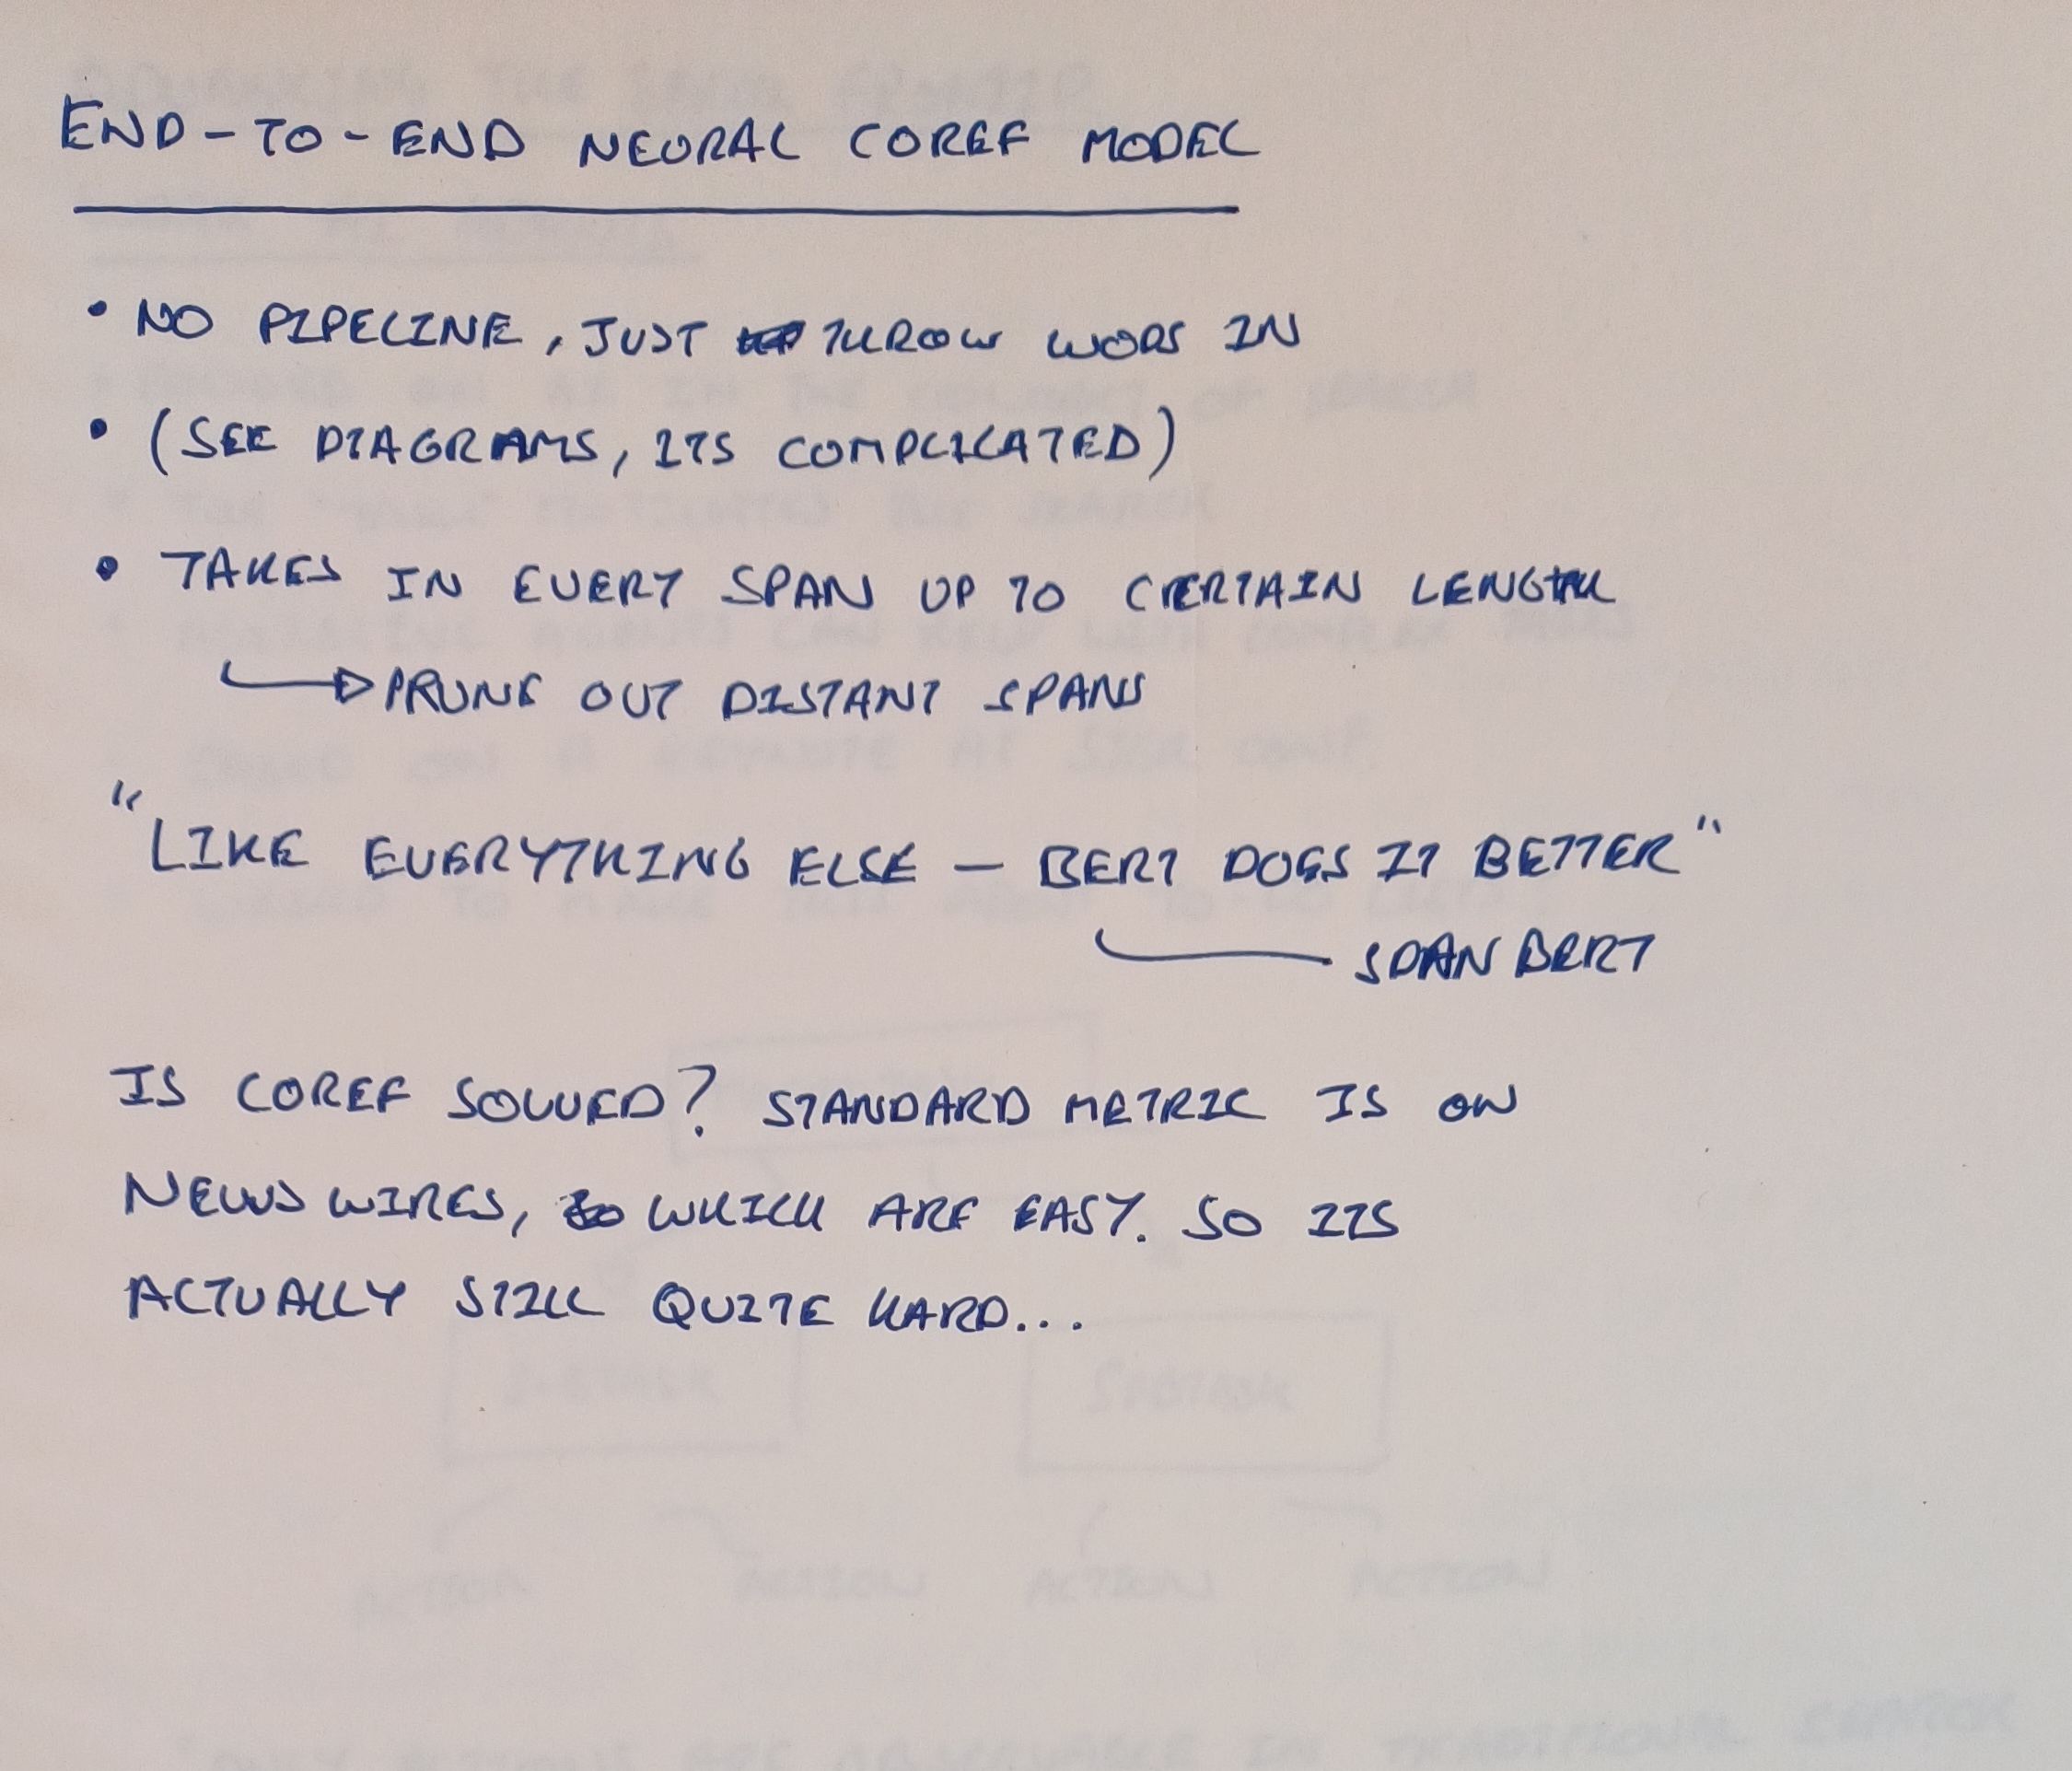 END-TO-END NEURAL COREF MODEL
• NO PIPELINE, JUST THROW WORS IN
• (SEE DIAGRAMS, ITS COMPLICATED)
• TAKES IN EVERY SPAN UP TO CERTAIN LENGTH
PRUNE OUT DISTANT SPANS
"LIKE EVERYTHING ELSE – BERT DOES IT BETTER"
SPANBERT
IS COREF SOLVED? STANDARD METRIC IS ON
NEWSWIRES, WHICH ARE EASY. SO ITS
ACTUALLY STILL QUITE HARD...